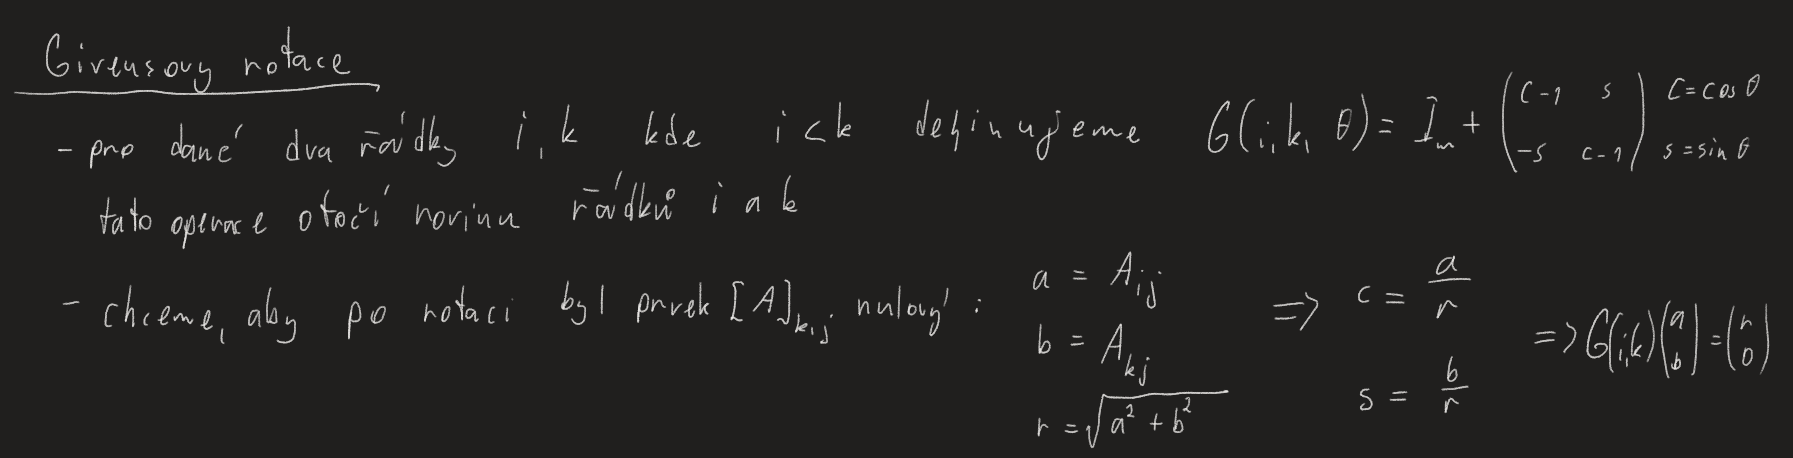 Givensovy rotace
- pro dané dva řádky i, k kde i < k definujeme G(i, k, θ) = I_m + \begin{pmatrix} c-1 & s \\ -s & c-1 \end{pmatrix} c = cos θ
s = sin θ
tato operace otočí rovinu řádků i a k
- chceme, aby po rotaci byl prvek [A]_{k,j} nulový: a = A_{ij} ⇒ c = \frac{a}{r}
b = A_{kj} ⇒ G(i,k) \begin{pmatrix} a \\ b \end{pmatrix} = \begin{pmatrix} r \\ 0 \end{pmatrix}
r = \sqrt{a^2 + b^2} s = \frac{b}{r}